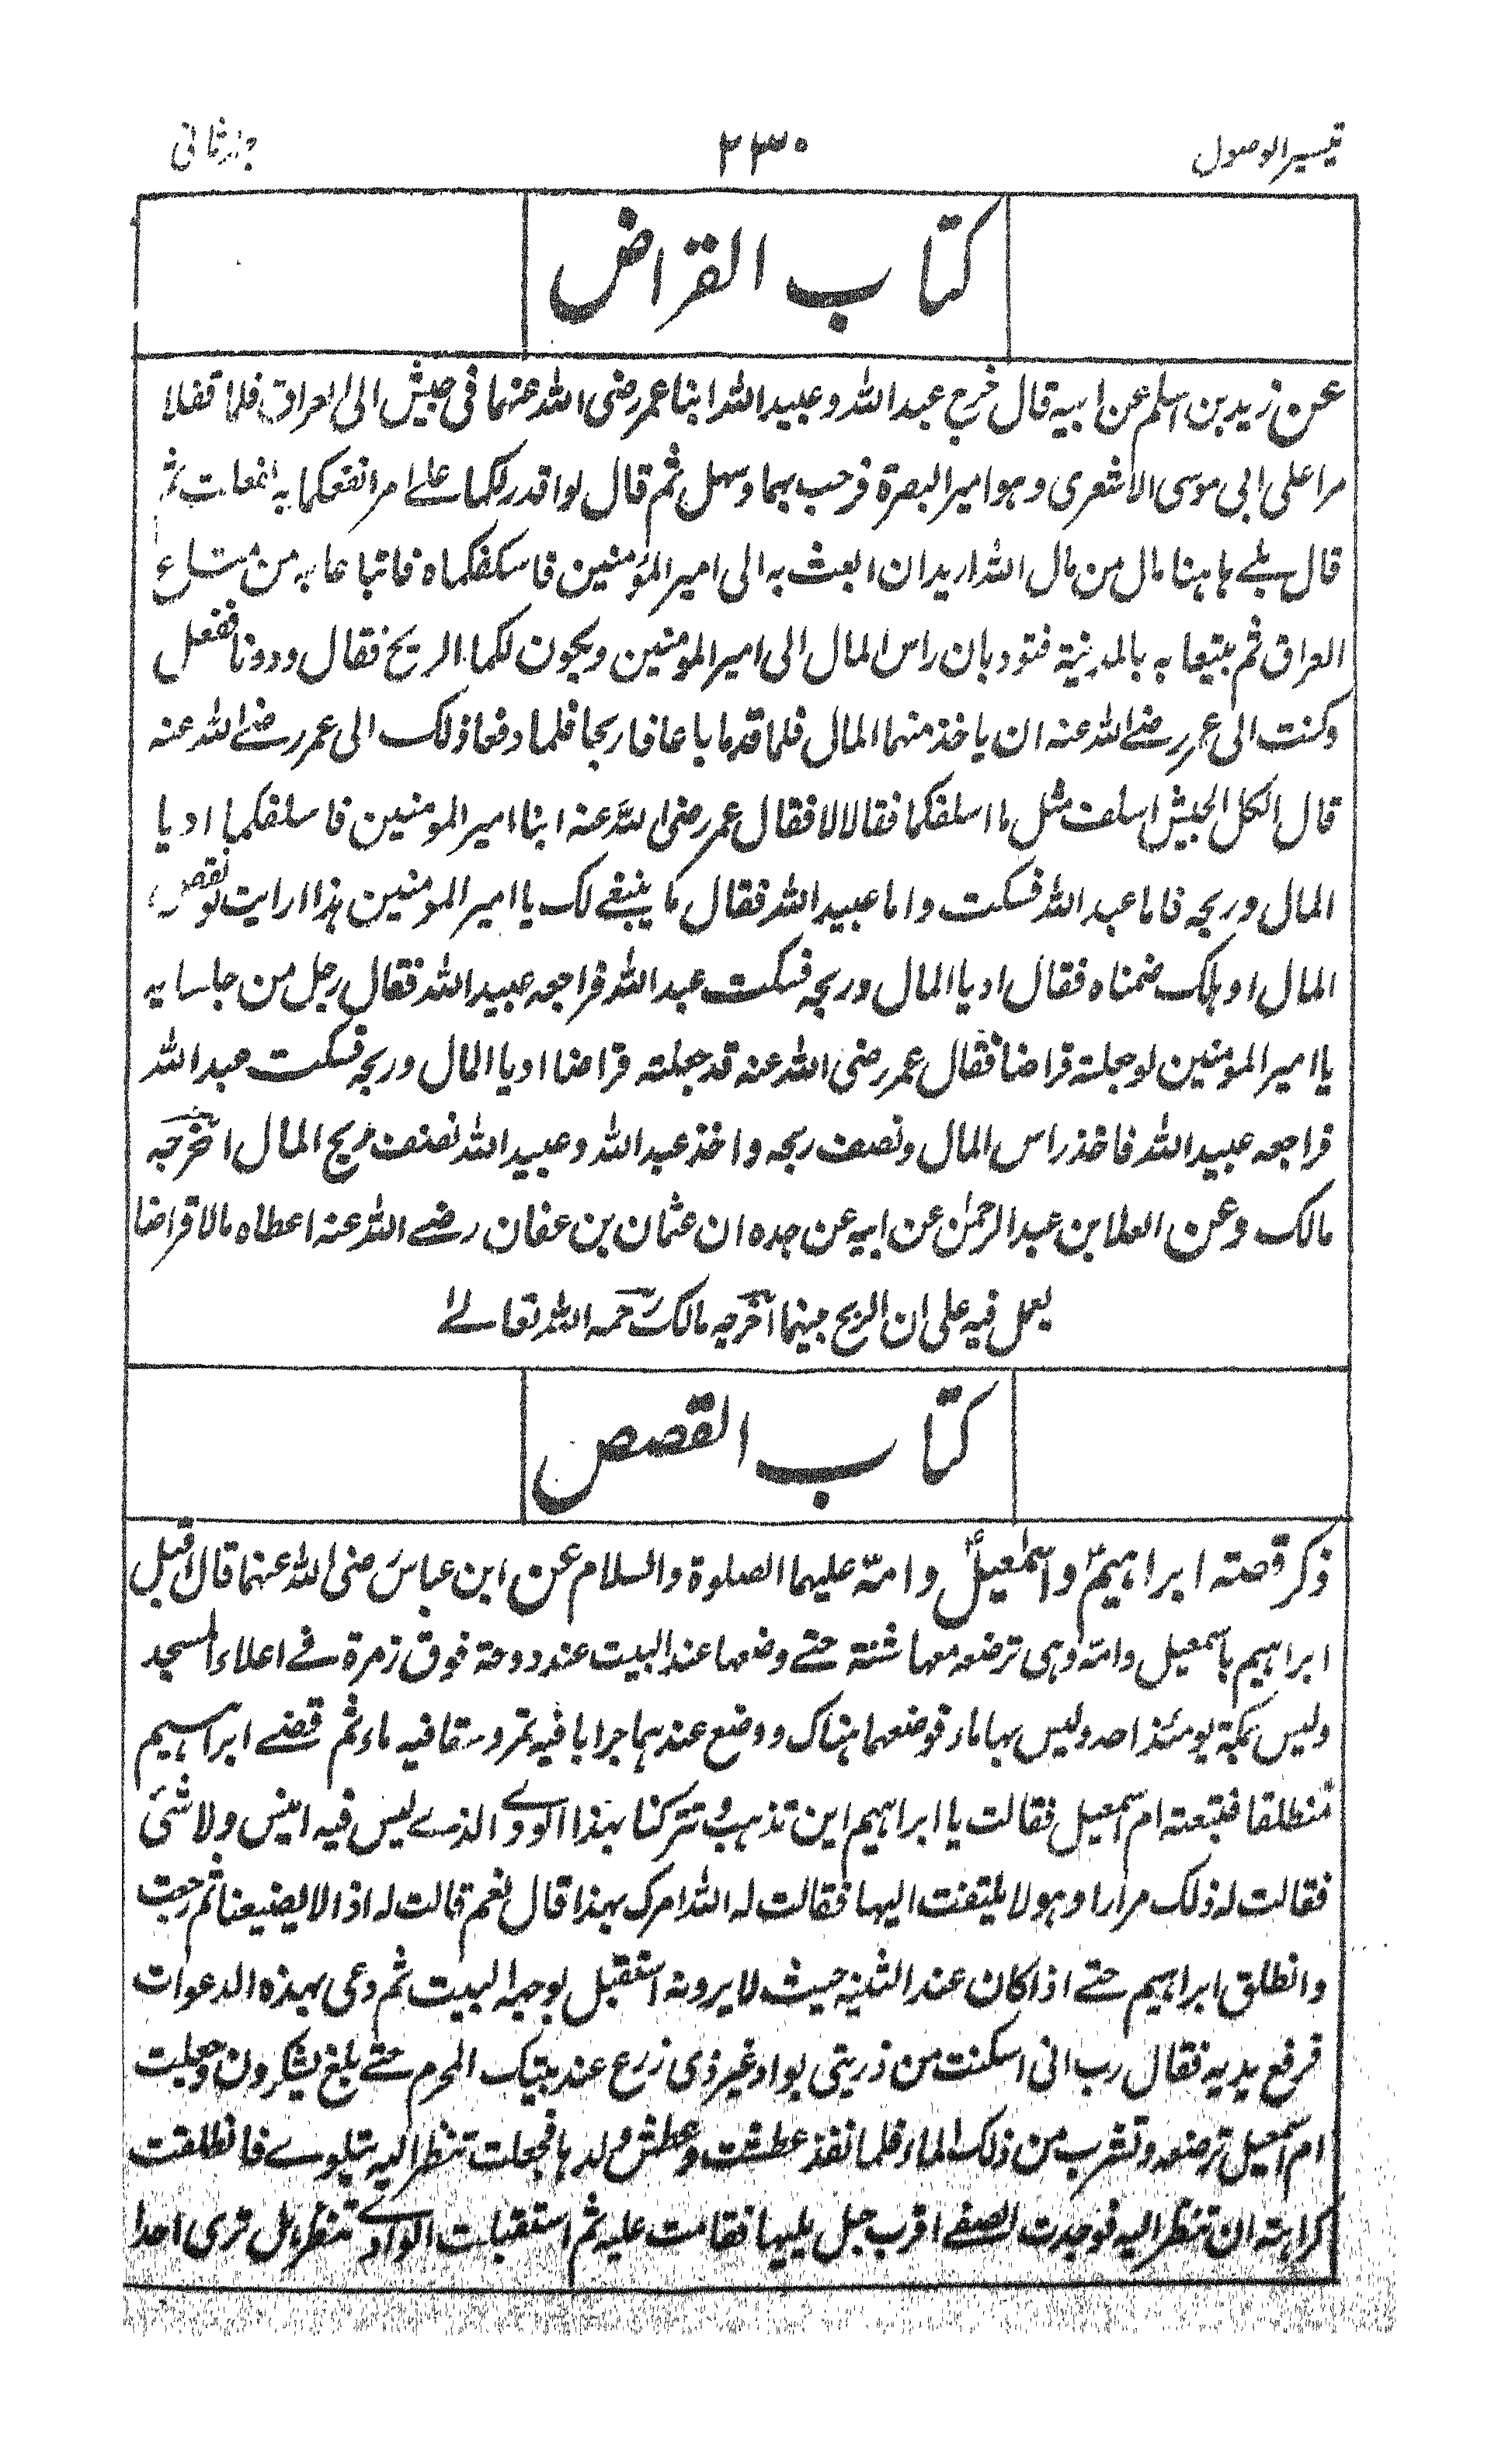 تیسیر الوصول
٢٣٠
جزء ثانی
کتاب القراض
عن زید بن اسلم عن ابیہ قال خرج عبد اللہ وعبید اللہ ابنا عمر رضی اللہ عنہما فی جیش الی العراق فلما قفلا
مرا علی ابی موسی الاشعری وہو امیر البصرۃ فرحب بہما وسہل ثم قال لو اقدر لکما علے امر انفعکما بہ لفعلت ثم
قال بلے ہاہنا مال من مال اللہ ارید ان ابعث بہ الی امیر المؤمنین فاسلفکماہ فاتبا عا بہ من متاع
العراق ثم بتیعا بہ بالمدینۃ فتودیان راس المال الی امیر المومنین ویکون لکما الربح فقال وددنا ففعل
وکتب الی عمر رضے اللہ عنہ ان یاخذ منہما المال فلما قدما باعا فاربحا فلما دفعا ذلک الی عمر رضے اللہ عنہ
قال اکل الجیش اسلف مثل ما اسلفکما فقالا لا فقال عمر رضی اللہ عنہ ابنا امیر المومنین فاسلفکما ادیا
المال وربحہ فاما عبد اللہ فسکت واما عبید اللہ فقال ما ینبغے لک یا امیر المومنین ہذا ارایت لو نقص
المال او ہلک ضمناہ فقال ادیا المال وربحہ فسکت عبد اللہ فراجعہ عبید اللہ فقال رجل من جلسایہ
یا امیر المومنین لو جعلتہ قراضا فقال عمر رضی اللہ عنہ قد جعلتہ قراضا ادیا المال وربحہ فسکت عبد اللہ
فراجعہ عبید اللہ فاخذ راس المال ونصف ربحہ واخذ عبد اللہ وعبید اللہ نصف ربح المال اخرجہ
مالک وعن العلا بن عبد الرحمٰن عن ابیہ عن جدہ ان عثمان بن عفان رضے اللہ عنہ اعطاہ مالا قراضا
یعمل فیہ علی ان الربح بینہما اخرجہ مالک رحمہ اللہ تعالے
کتاب القصص
ذکر قصتہ ابراہیم واسمٰعیل وامہ علیہما الصلوۃ والسلام عن ابن عباس رضی اللہ عنہما قال اقبل
ابراہیم باسمعیل وامہ وہی ترضعہ معہا شنۃ حتے وضعہا عند البیت عند دوحۃ فوق زمزۃ فے اعلاء المسجد
ولیس بمکۃ یومئذ احد ولیس بہا ماء فوضعہما ہناک ووضع عندہما جرابا فیہ تمر وسقا فیہ ماء ثم قضے ابراہیم
منطلقا فتبعتہ ام اسمعیل فقالت یا ابراہیم این تذہب وتترکنا بہذا الوادے الذے لیس فیہ انیس ولا شئ
فقالت لہ ذلک مرارا وہو لا یلتفت الیہا فقالت لہ اللہ امرک بہذا قال نعم قالت لہ اذا لا یضیعنا ثم رجعت
وانطلق ابراہیم حتے اذا کان عند الثنیہ حیث لا یرونہ استقبل بوجہہ البیت ثم دعی بہذہ الدعوات
فرفع یدیہ فقال رب انی اسکنت من ذریتی بواد غیر ذی زرع عند بیتک المحرم حتے بلغ یشکرون وجعلت
ام اسمعیل ترضعہ وتشرب من ذلک الماء فلما نفذ عطشت وعطش ولدہا فجعلت تنظر الیہ یتلوے فانطلقت
کراہتہ ان تنظر الیہ فوجدت الصفے اقرب جبل یلیہا فقامت علیہ ثم استقبلت الوادے تنظر ہل تری احدا